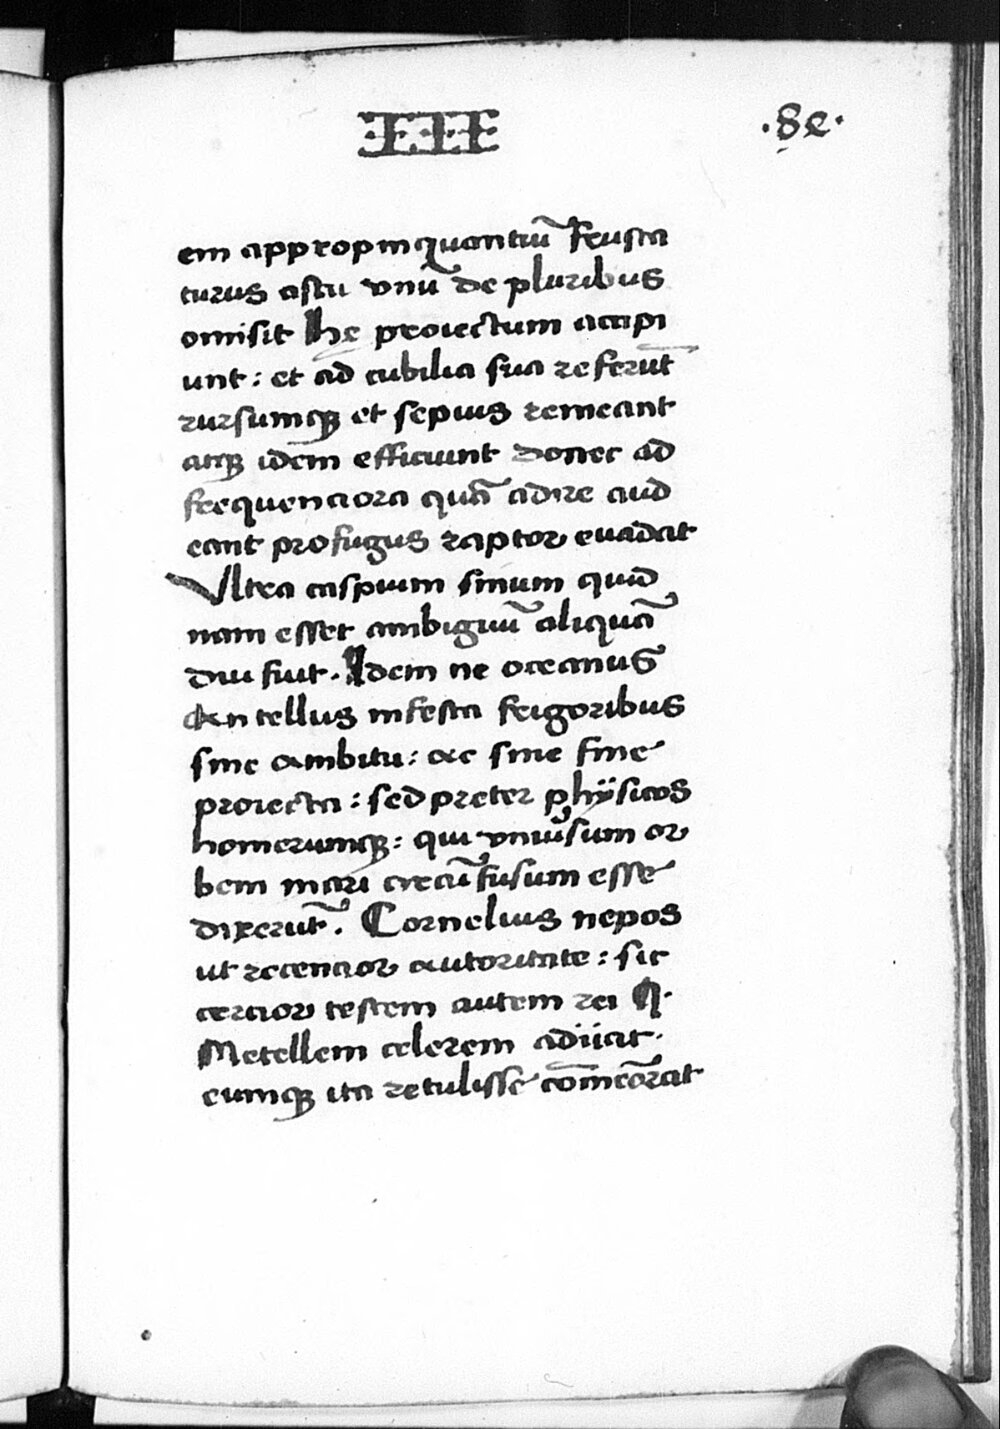 III
·8e·
em appropinquantiū frusta
turus astu vnū de pluribus
omisit he proiectum accipi
unt: et ad cubilia sua referūt
rursumqꝫ et sepius remeant
atqꝫ idem efficiunt donec ad
frequenciora quā adire aud
eant profugus raptor euadat
Vltra caspium sinum quid
nam esset ambiguū aliquā
diu fuit. Idem ne oceanus
An tellus infesta frigoribus
sine ambitu: ac sine fine
proiecta: sed preter phÿsicos
homerumqꝫ: qui vniu̓sum or
bem mari circūfusum esse
dixerūt. Cornelius nepos
ut recencior autoritate: sic
cercior testem autem rei Q.
Metellem celerem adiicit.
eumqꝫ ita retulisse cōmēorat